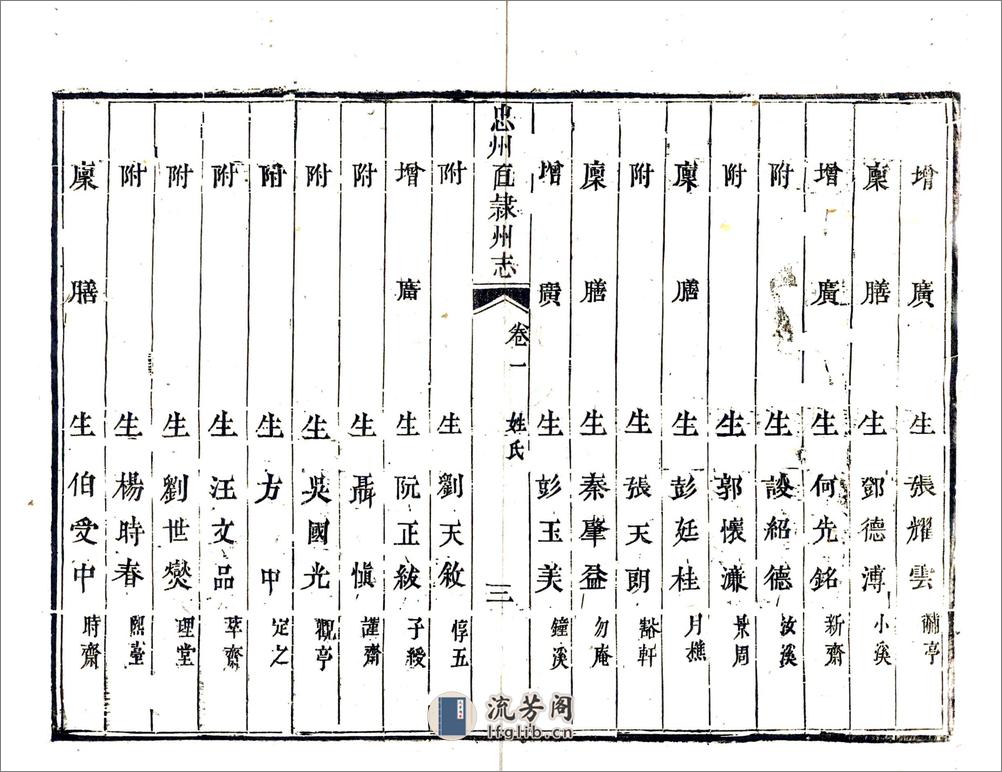 增廣生張耀雲
廩膳生鄧德溥小溪
增廣生何先銘新齋
附生談紹德汝溪
附生郭懷濂景周
廩膳生彭廷桂月樵
附生張天朗豁軒
廩膳生秦肇益勿庵
增廣生彭玉美鐘溪
忠州直隸州志
卷一
姓氏
三
附生劉天敘惇五
增廣生阮正紱子綬
附生聶慎謹齋
附生吳國光觀亭
附生方中定之
附生汪文品萃齋
附生劉世爕理堂
附生楊時春熙臺
廩膳生伯受中時齋
流芳阁
lfglib.cn